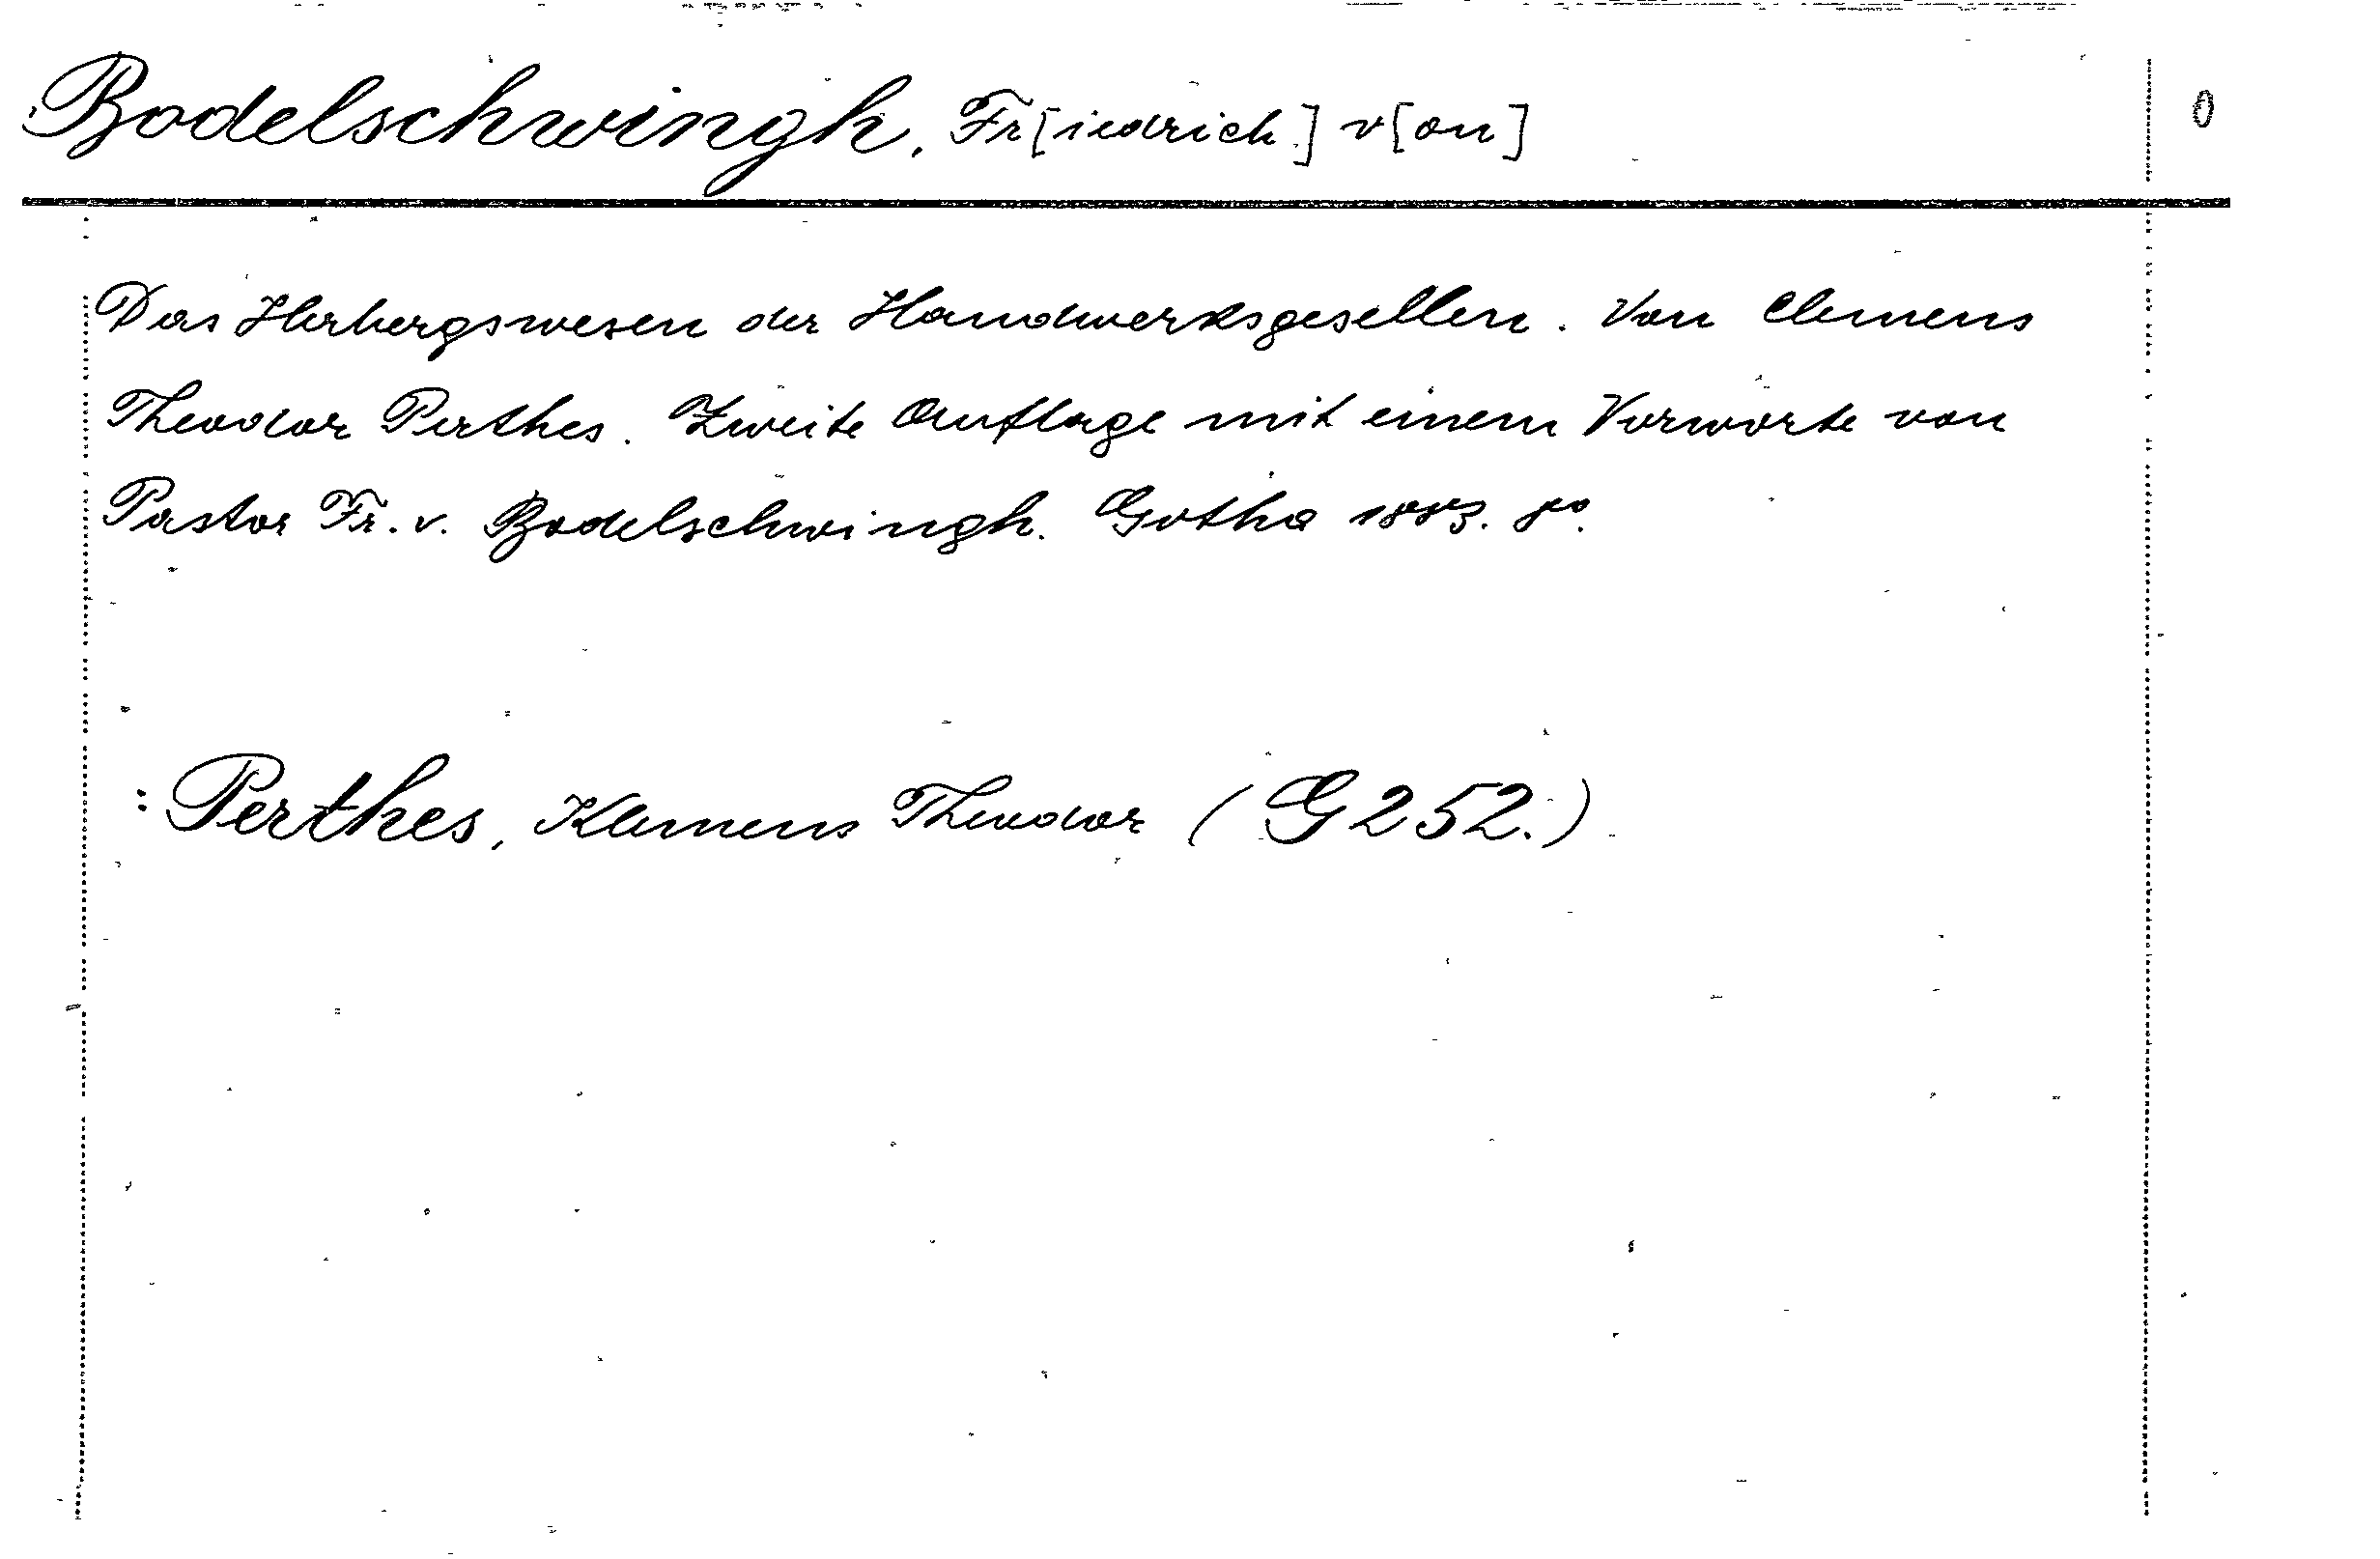 Bodelschwingh, Fr[iedrich] v[on] 0
Das Herbergswesen der Handwerksgesellen. Von Clemens
Theodor Perthes. Zweite Auflage mit einem Vorworte von
Pastor Fr. v. Bodelschwingh. Gotha 1883. 8º.
: Perthes, Klemens Theodor (G 252.)